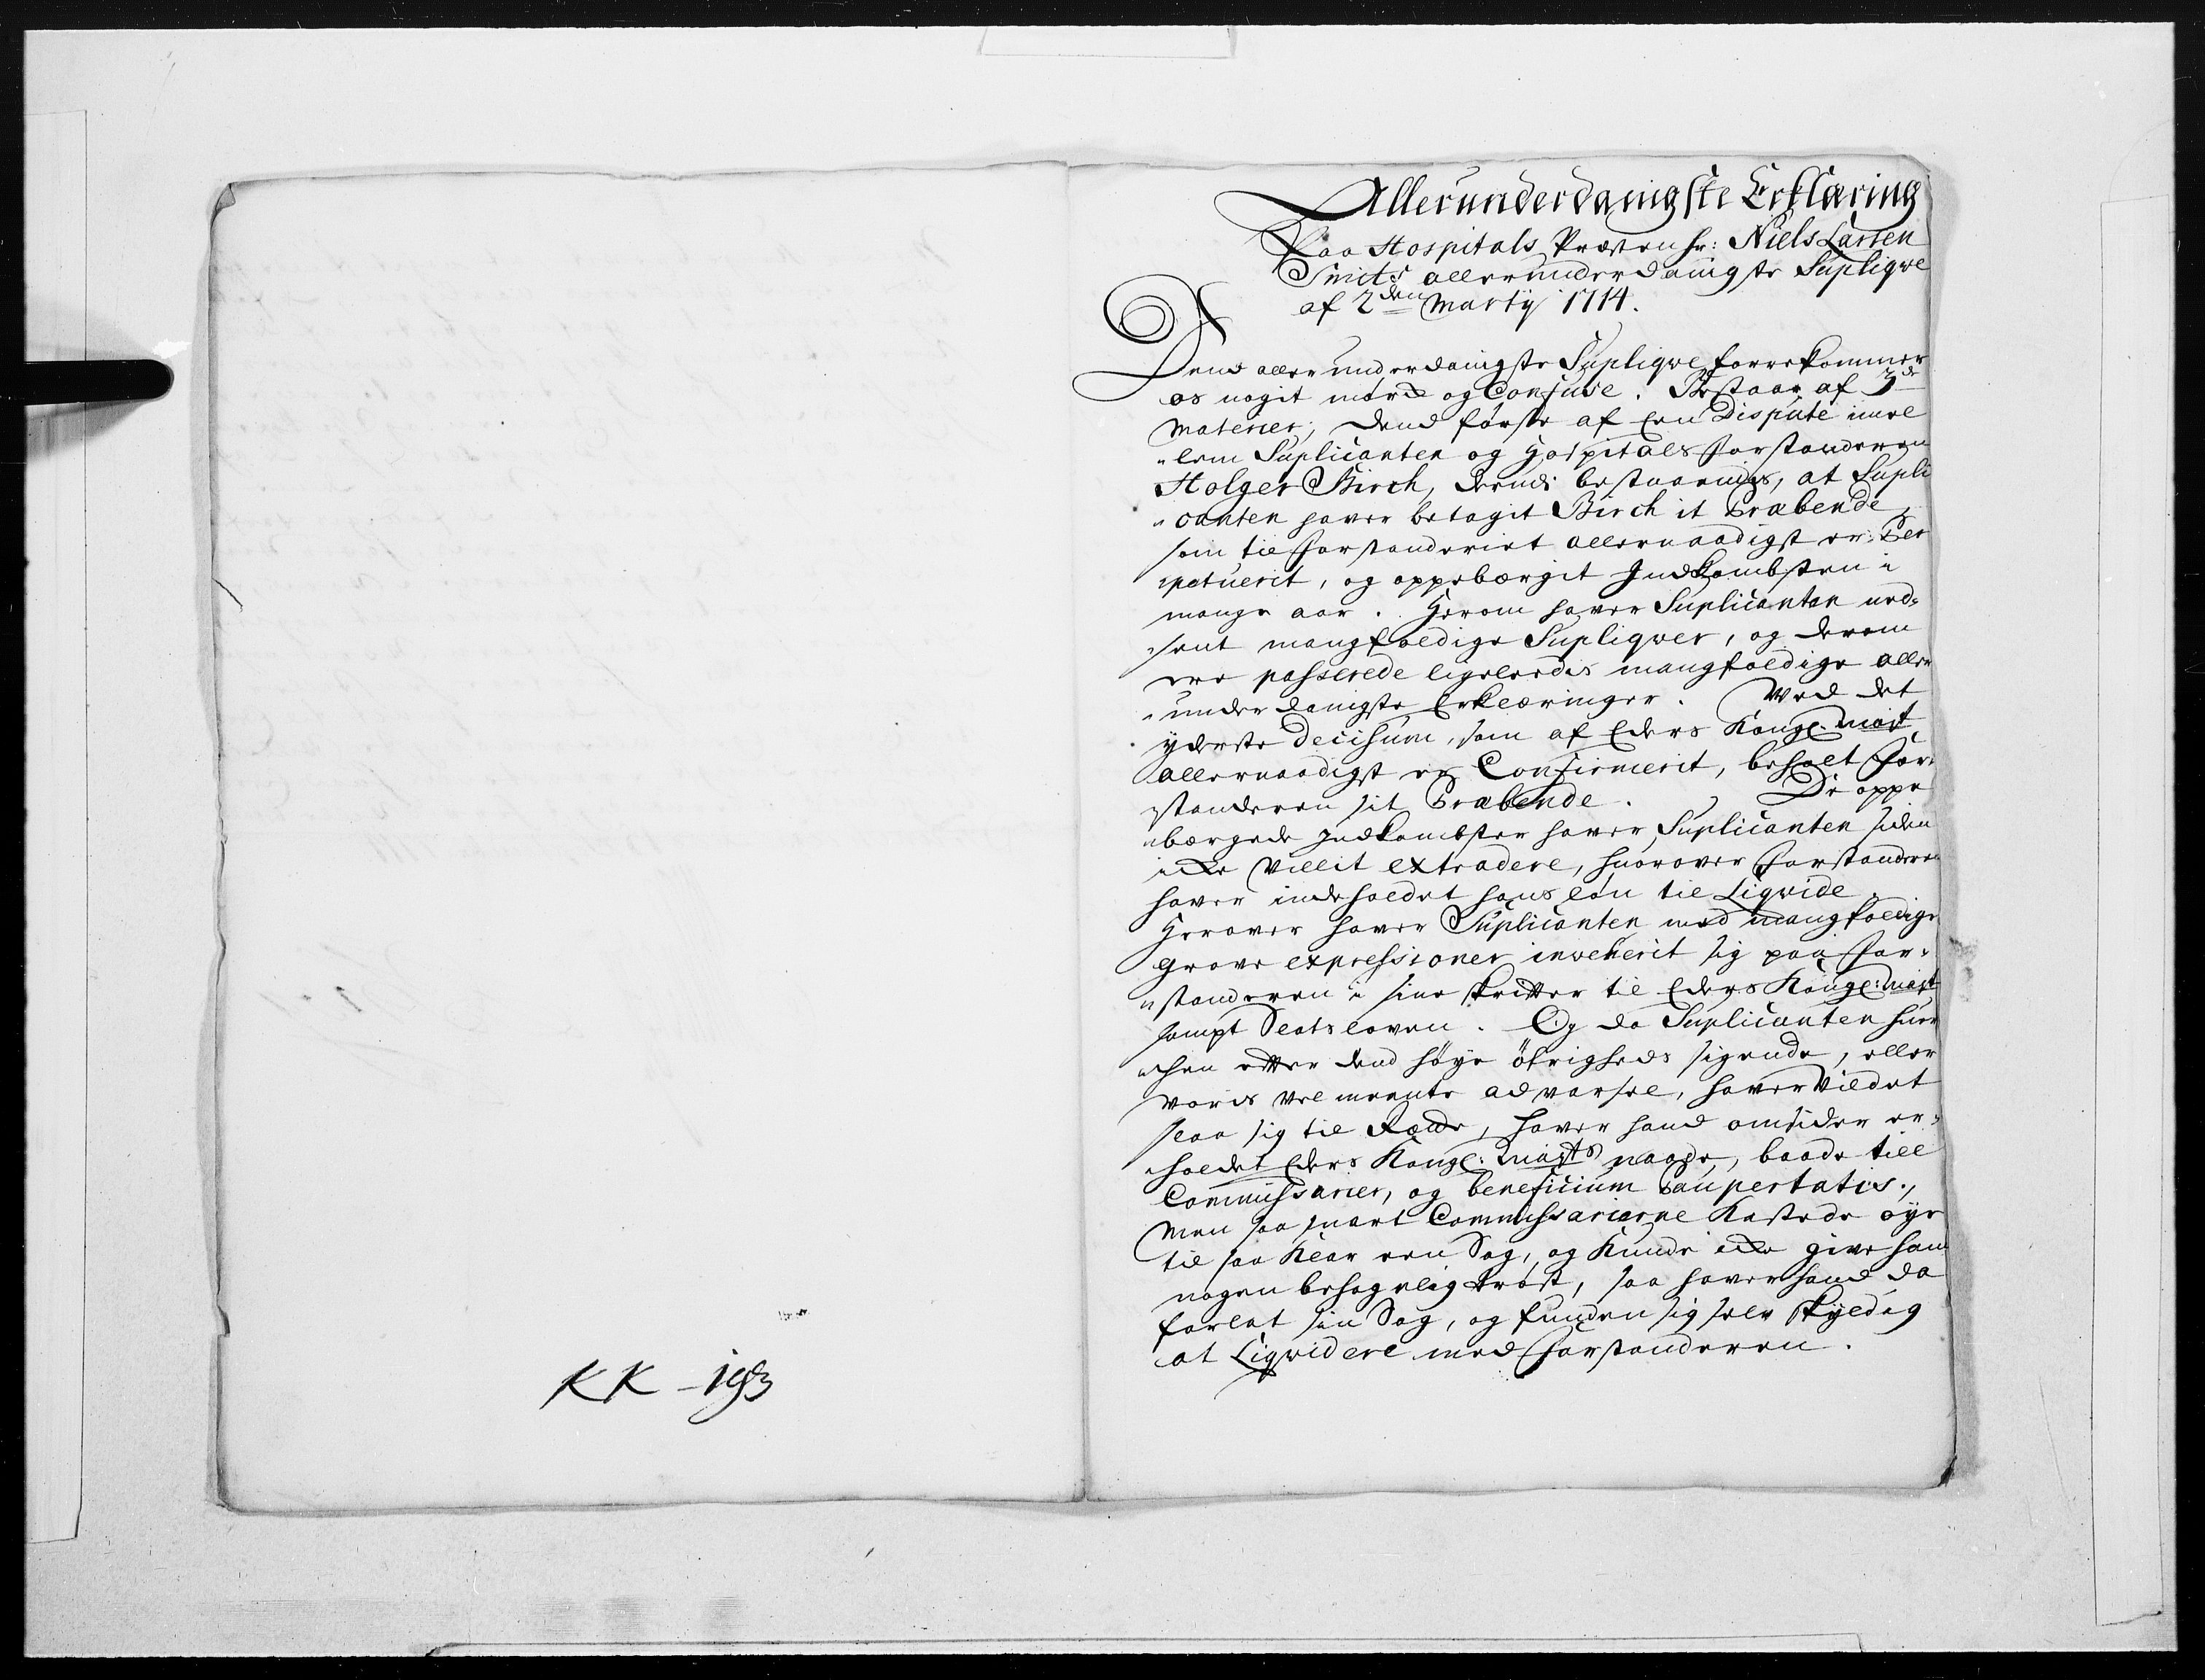 Allerunderdanigste Erklæring
Paa Hospitals Præsten hr: Niels Larsen
Smits allerunderdanigste Supliqve
af 2den Martij 1714.
Dend allerunderdanigste Supliqve forrekommer
os nogit mörck og Confuse. Bestaar af 3de
Materier; Dend förste af Een Dispute imel
"lem Suplicanten og Hospitals Forstanderen
Holger Birch, derudi bestaaendes, at Supli
"canten hafver betagit Birch it Præbende,
som til Forstanderiet allernaadigst er Per
"petuerit, og oppebærgit Indkombsten i
mange aar. Herom hafver Suplicanten ind-
"sent mangfoldige Supliqver, og derom
ere passerede ligeleedes mangfoldige aller
"underdanigste Erklæringer. Ved det
yderste Decisum, som af Eders Kongl. Mayt
allernaadigst er Confirmerit, beholt For-
"standeren sit Præbende. De oppe
"bærgede Indkombster hafver Suplicanten siden
icke villit extradere, huorover Forstanderen
hafver indeholdet hans lön til Liqvide.
Herover hafver Suplicanten med mangfoldige
grove expressioner inveherit sig paa For-
"standeren i sine skrifter til Eders Kongl: Mayt
sampt Slatsloven. Og da Suplicanten huer
"chen efter dend höye öfrigheds sigende, eller
voris vel meente advarsel, hafver vildet
slaa sig til Roelighed, hafver hand omsider er-
"holdet Eders Kongl: Maysts naade, baade till
Commissarier, og beneficium Paupertatis.,
Men saa snart Commissarierne kastede öye
til saa klar een Sag, og kunde icke give ham
nogen behagelig tröst, saa hafver hand da
forlat sin Sag, og funden sig selv skyldig
at Liqvidere med Forstanderen.
KK - 193